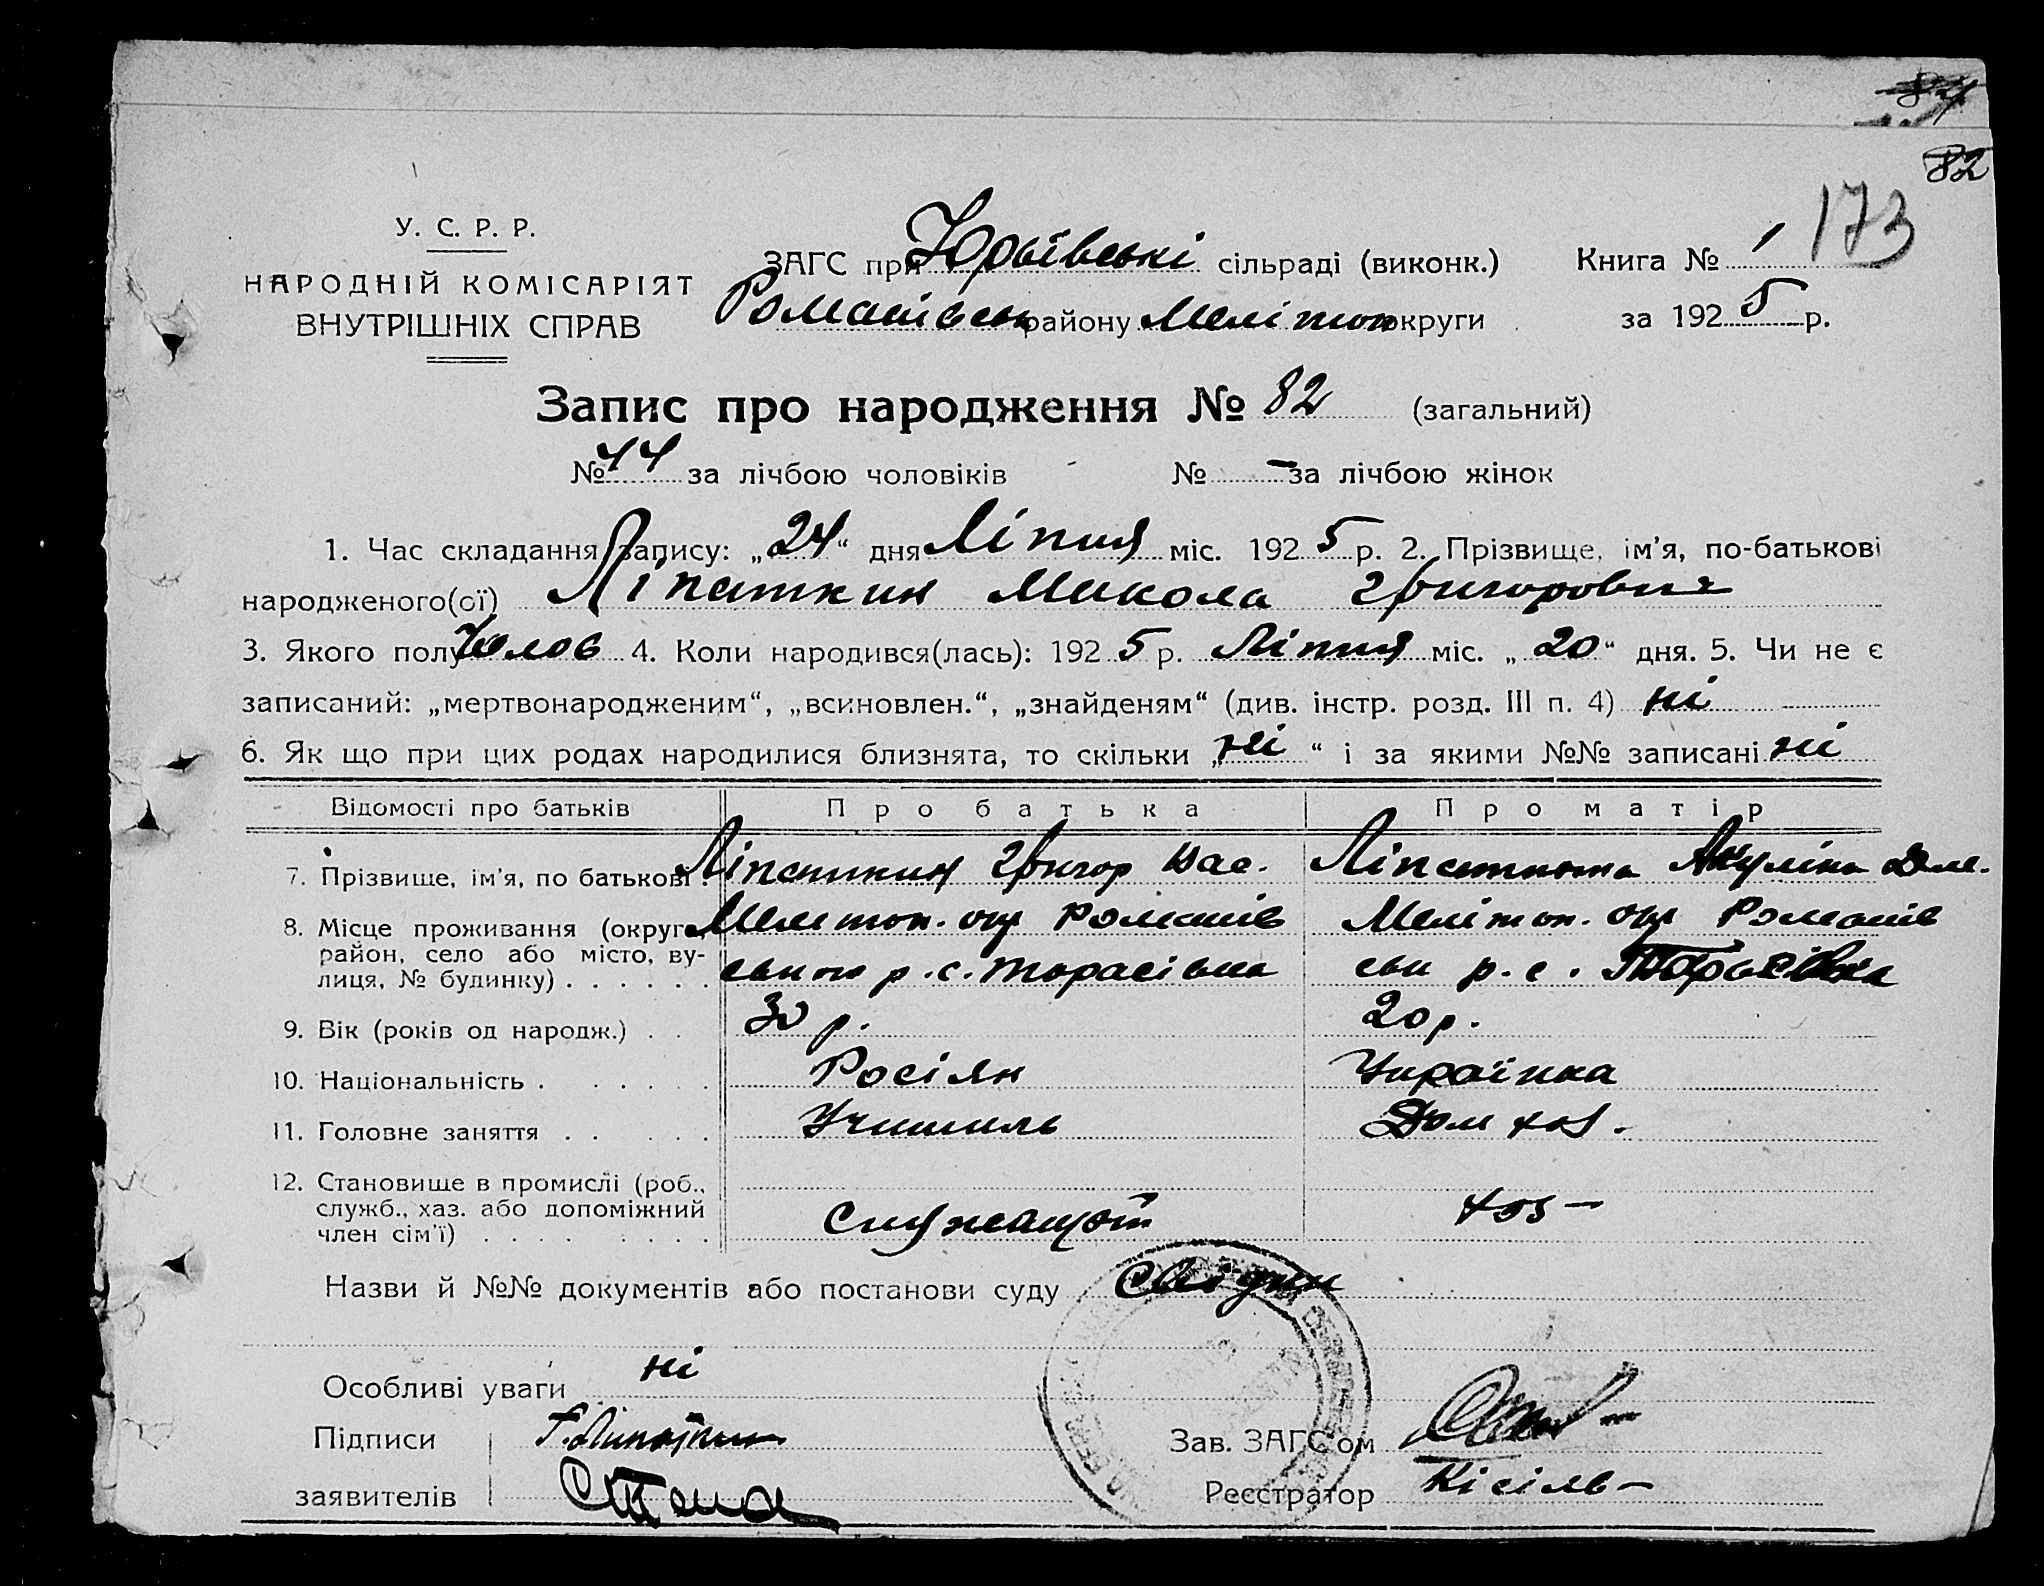 82
173
У. С. Р. Р.
НАРОДНІЙ КОМІСАРІЯТ
ВНУТРІШНІХ СПРАВ
ЗАГС при Юрьївські сільраді (виконк.) Книга № 1
Романівськ району Мелітоп округи за 1925 р.
Запис про народження № 82 (загальний)
№ 44 за лічбою чоловіків № – за лічбою жінок
1. Час складання запису: „24“ дня Ліпня міс. 1925 р. 2. Прізвище, ім'я, по-батькові
народженого(ої) Ліпаткин Микола Григорович
3. Якого полу Чолов 4. Коли народився(лась): 1925 р. Ліпня міс. „20“ дня. 5. Чи не є
записаний: „мертвонародженим“, „всиновлен.“, „знайденям“ (див. інстр. розд. III п. 4) ні
6. Як що при цих родах народилися близнята, то скільки „ні“ і за якими №№ записані ні
Відомості про батьків Про батька Про матір
7. Прізвище, ім'я, по батькові . Ліпаткин Григор Вас. Ліпаткина Акуліна Дем.
8. Місце проживання (округа, район, село або місто, вулиця, № будинку) . . . . . . Мелітоп. окр Романівського р. с. Тарасівка Мелітоп. окр Романівськ р. с.
9. Вік (років од народж.) . . . 30 р. 20 р.
10. Національність . . . . . . Росіян Українка
11. Головне заняття . . . . . . Учитиль Дом хоз.
12. Становище в промислі (роб., служб., хаз. або допоміжний член сім'ї) . . . . . . . . Служащой хоз –
Назви й №№ документів або постанови суду
Особливі уваги ні
Підписи Г. Липаткин Зав. ЗАГС'ом
заявителів Реєстратор Кісіль